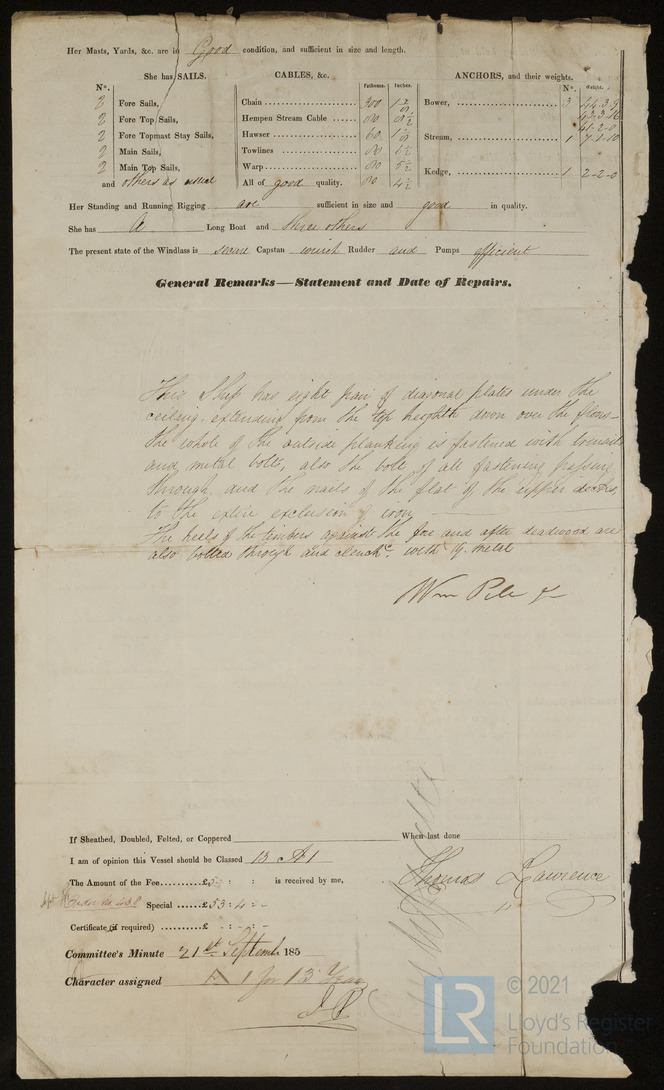 Her Masts, Yards, &c. are in Good condition, and sufficient in size and length.
She has SAILS. CABLES, &c. ANCHORS, and their weights.
N°. Fathoms. Inches. N°. Weight.
2 Fore Sails, Chain 300 Bower, 3
2 Fore Top Sails, Hempen Stream Cable
2 Fore Topmast Stay Sails, Hawser Stream, 1 7-1-10
2 Main Sails, Towlines
2 Main Top Sails, Warp 80 5½ Kedge, 1 2-2-0
and others as usual All of good quality. 80 4½
Her Standing and Running Rigging are sufficient in size and good in quality.
She has A Long Boat and three others
The present state of the Windlass is Capstan winch Rudder and Pumps efficient
General Remarks—Statement and Date of Repairs.
This Ship has eight pair of diagonal plates under the
ceiling, extending from the top height down over the floors
the whole of the outside planking is fastened with treenails
and metal bolts, also the bolts of all fastening passing
through and the nails of the flat of the upper decks
to the entire exclusion of iron
The heels of the timbers against the fore and after deadwood are
also bolted through and clench^d. with y. metal
Wm Pile
If Sheathed, Doubled, Felted, or Coppered When last done
I am of opinion this Vessel should be Classed 13 A1
The Amount of the Fee..........£5 : : is received by me, Thomas Lawrence
Special ......£53 : 4 : -
Certificate (if required) ..........£ - : - : -
Committee's Minute 21st Septemb 185
Character assigned A 1 for 13 Years
© 2021
LR
Lloyd's Register
Foundation